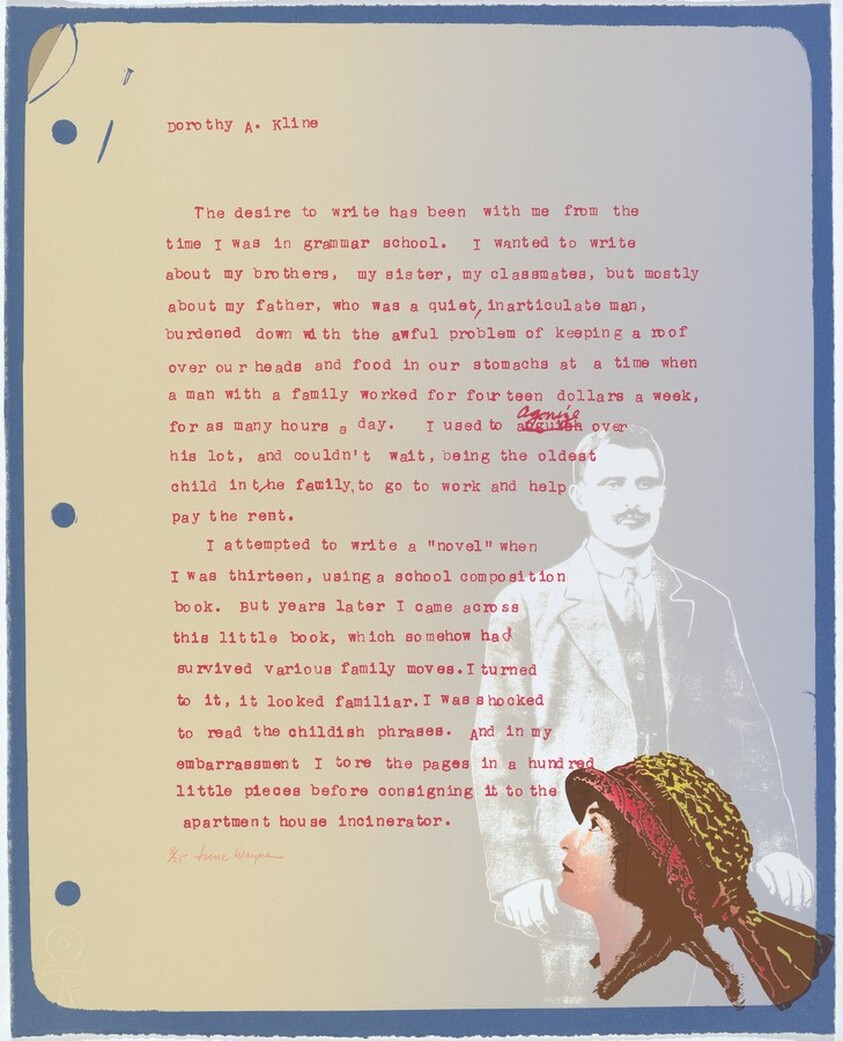 Dorothy A. Kline
The desire to write has been with me from the
time I was in grammar school. I wanted to write
about my brothers, my sister, my classmates, but mostly
about my father, who was a quiet, inarticulate man,
burdened down with the awful problem of keeping a roof
over our heads and food in our stomachs at a time when
a man with a family worked for fourteen dollars a week,
for as many hours a day. I used to agonize anguish over
his lot, and couldn't wait, being the oldest
child in the family, to go to work and help
pay the rent.
I attempted to write a "novel" when
I was thirteen, using a school composition
book. But years later I came across
this little book, which somehow had
survived various family moves. I turned
to it, it looked familiar. I was shocked
to read the childish phrases. And in my
embarrassment I tore the pages in a hundred
little pieces before consigning it to the
apartment house incinerator.
8/25 June Wayne